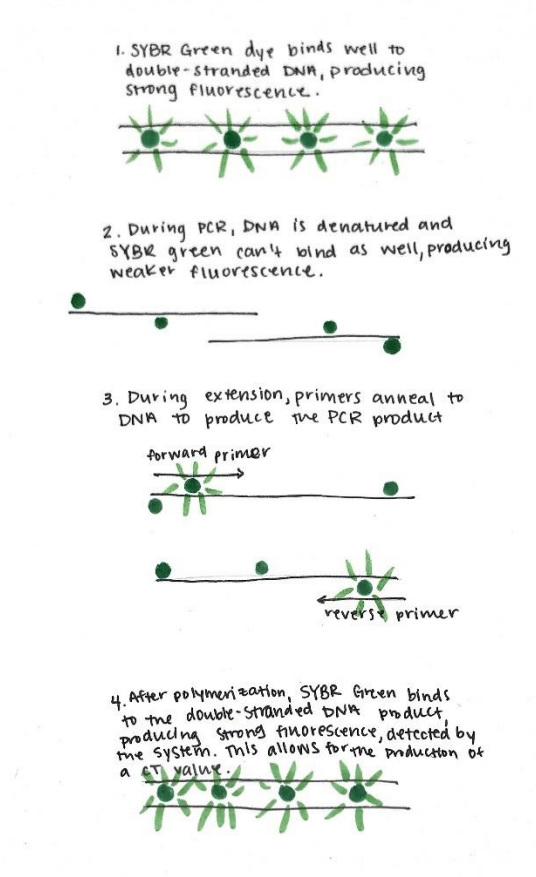 1. SYBR Green dye binds well to
double-stranded DNA, producing
strong fluorescence.
2. During PCR, DNA is denatured and
SYBR green can't bind as well, producing
weaker fluorescence.
3. During extension, primers anneal to
DNA to produce the PCR product
forward primer
reverse primer
4. After polymerization, SYBR Green binds
to the double-stranded DNA product,
producing strong fluorescence, detected by
the system. This allows for the production of
a CT value.